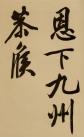 恩下九州
恭候